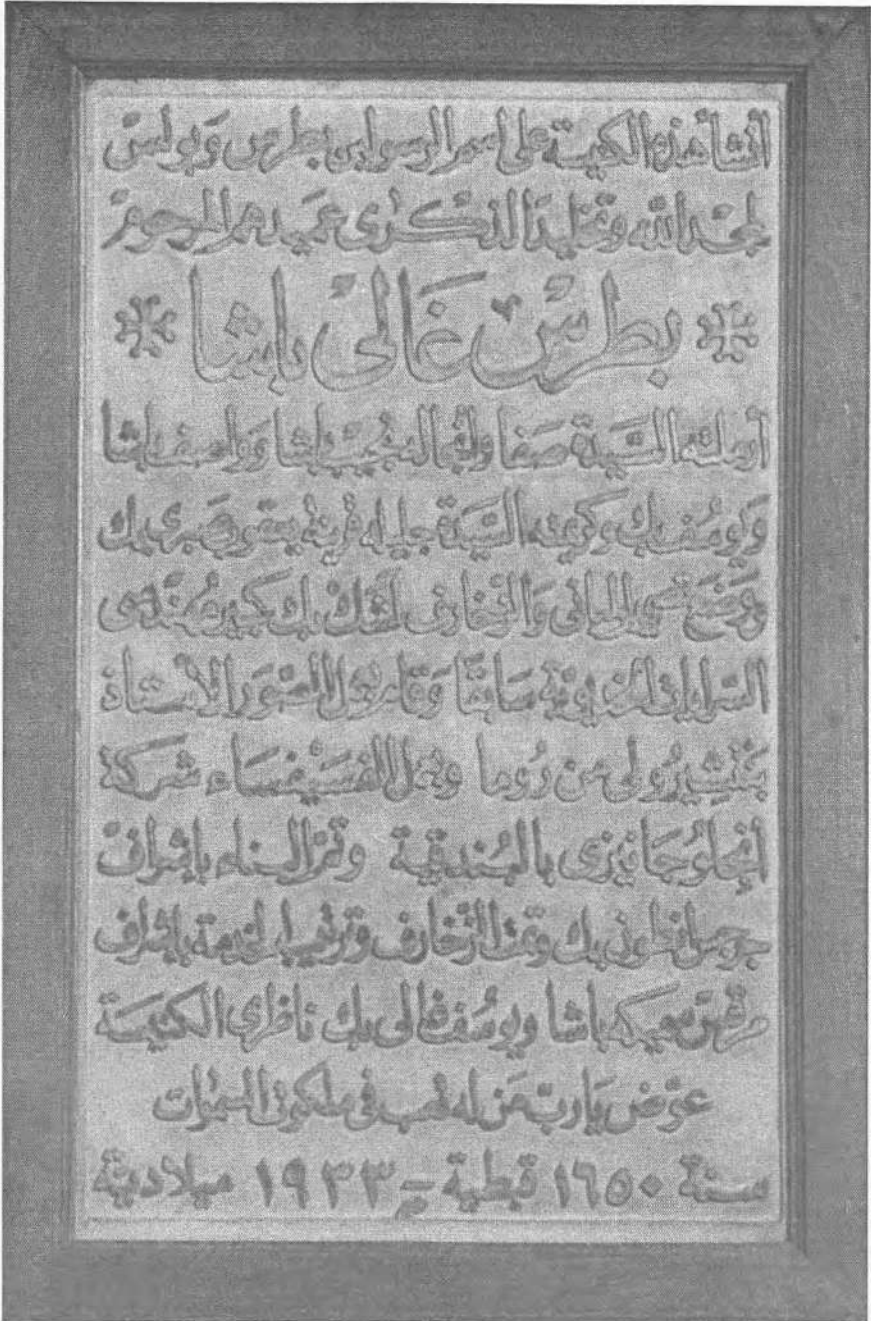 أنشأ هذه الكنيسة على اسم الرسولين بطرس وبولس
لمجد الله وتخليدا لذكرى عميدهم المرحوم
بطرس غالى باشا
أرملته السيدة صفا وأنجاله نجيب باشا وواصف باشا
ويوسف بك وكريمته السيدة جليله قرينة يعقوب صبرى بك
وضع تصميم المبانى والزخارف لشك بك كبير مهندسى
السرايات الخديوية سابقا وقام بعمل الصور الأستاذ
بنتشيرولى من روما وعمل الفسيفساء شركة
إنجلو جانيزى بالبندقية وتم البناء بإشراف
جرجس أنطون بك وتمت الزخارف وترتيب الخدمة بإشراف
مرقس سميكه باشا ويوسف غالى بك ناظرى الكنيسة
عوّض يارب من له تعب فى ملكوت السموات
سنة ١٦٥٠ قبطية - ١٩٣٣ ميلادية